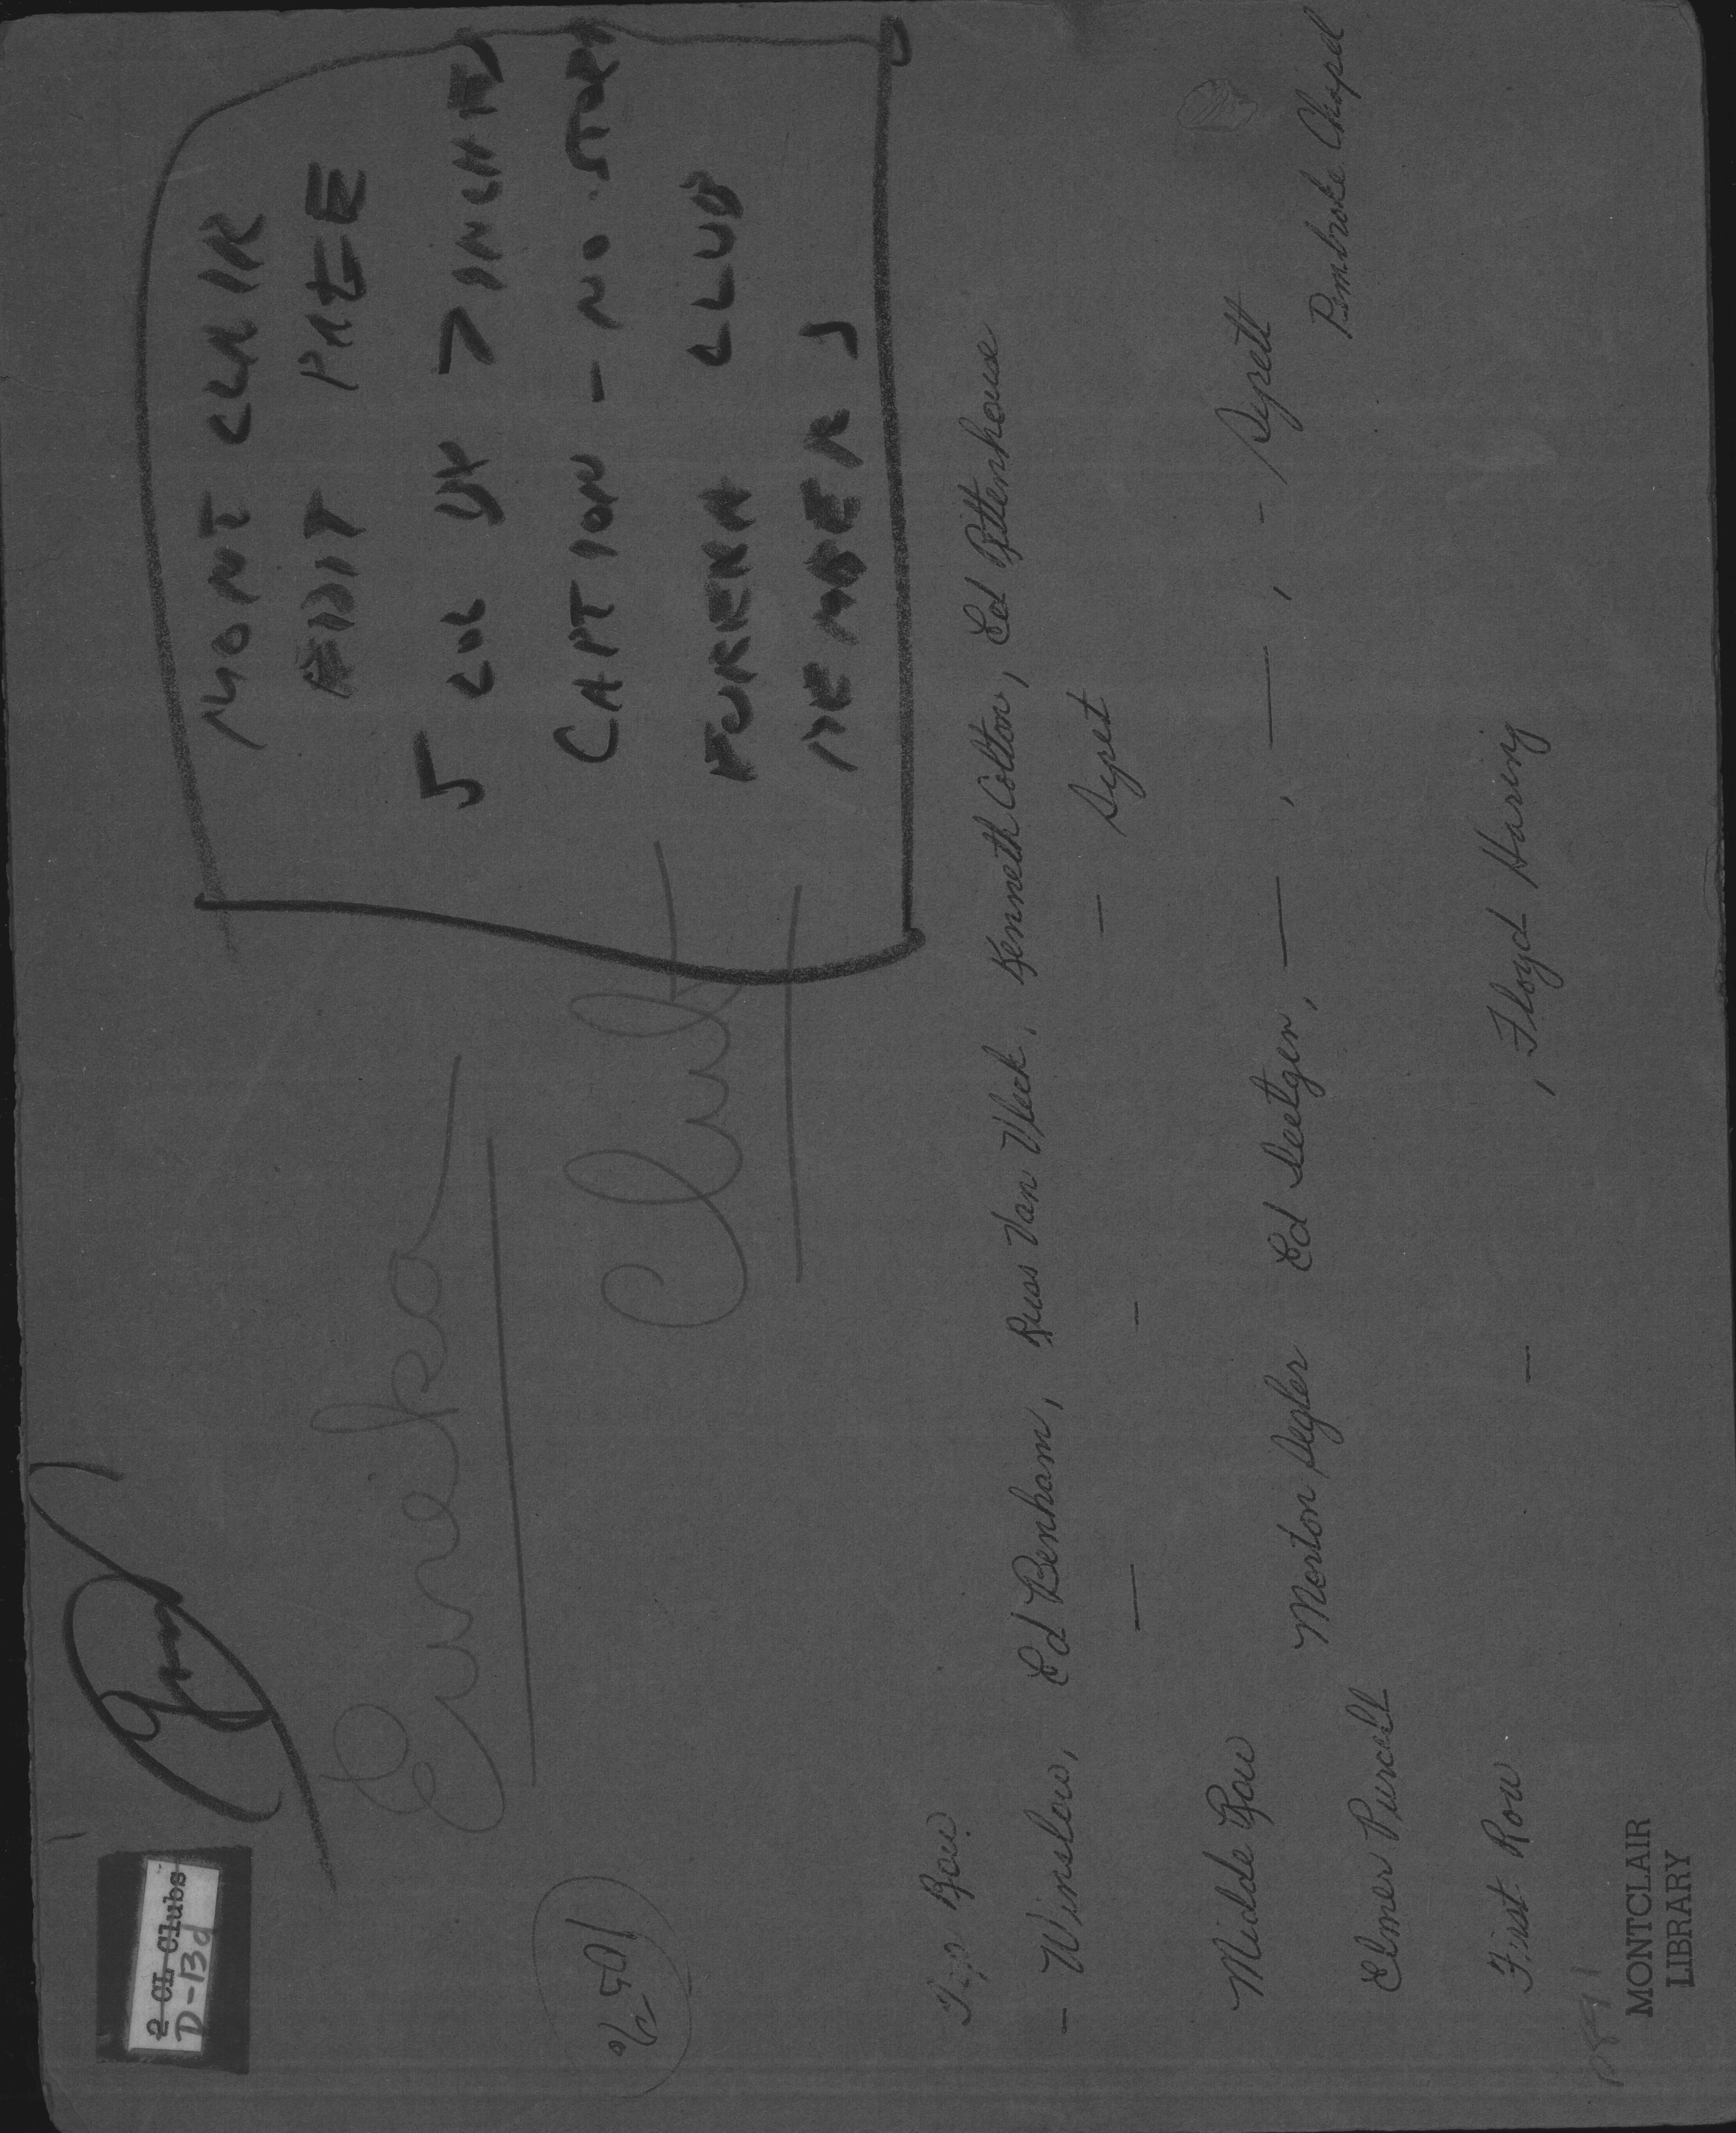 2 CL Clubs
D-13d
Eureka
Club
MONTCLAIR
EDIT PAGE
5 COL BY 7 INCHES
CAPTION - NO STORY
EUREKA CLUB
MEMBERS
Top Row
- Winslow, Ed Benham, Russ Van Vleck, Kenneth Colton, Ed Rittenhouse
— — — Sypet
Midde Row
Morton Segler Ed Seetgen, —, —, - Sypett
Elmer Purcell
Pembroke Chapel
First Row — , Floyd Haring
MONTCLAIR
LIBRARY